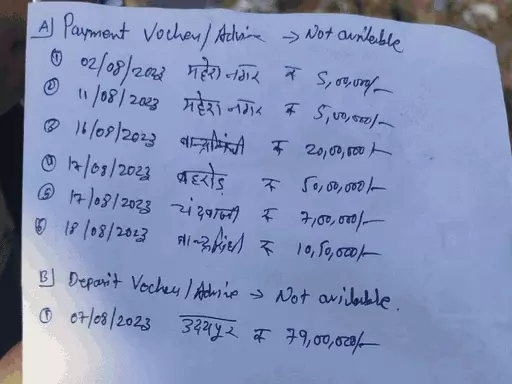 A) Payment Vocher/Advise → Not avilable
① 02/08/2023 महेश नगर ₹ 5,00,000/-
② 11/08/2023 महेश नगर ₹ 5,00,000/-
③ 16/08/2023 ₹ 20,00,000/-
④ 17/08/2023 बहरोड़ ₹ 50,00,000/-
⑤ 17/08/2023 चंदवाजी ₹ 7,00,000/-
⑥ 18/08/2023 ₹ 10,50,000/-
B) Deposit Vocher/Advise → Not avilable.
① 07/08/2023 उदयपुर ₹ 79,00,000/-